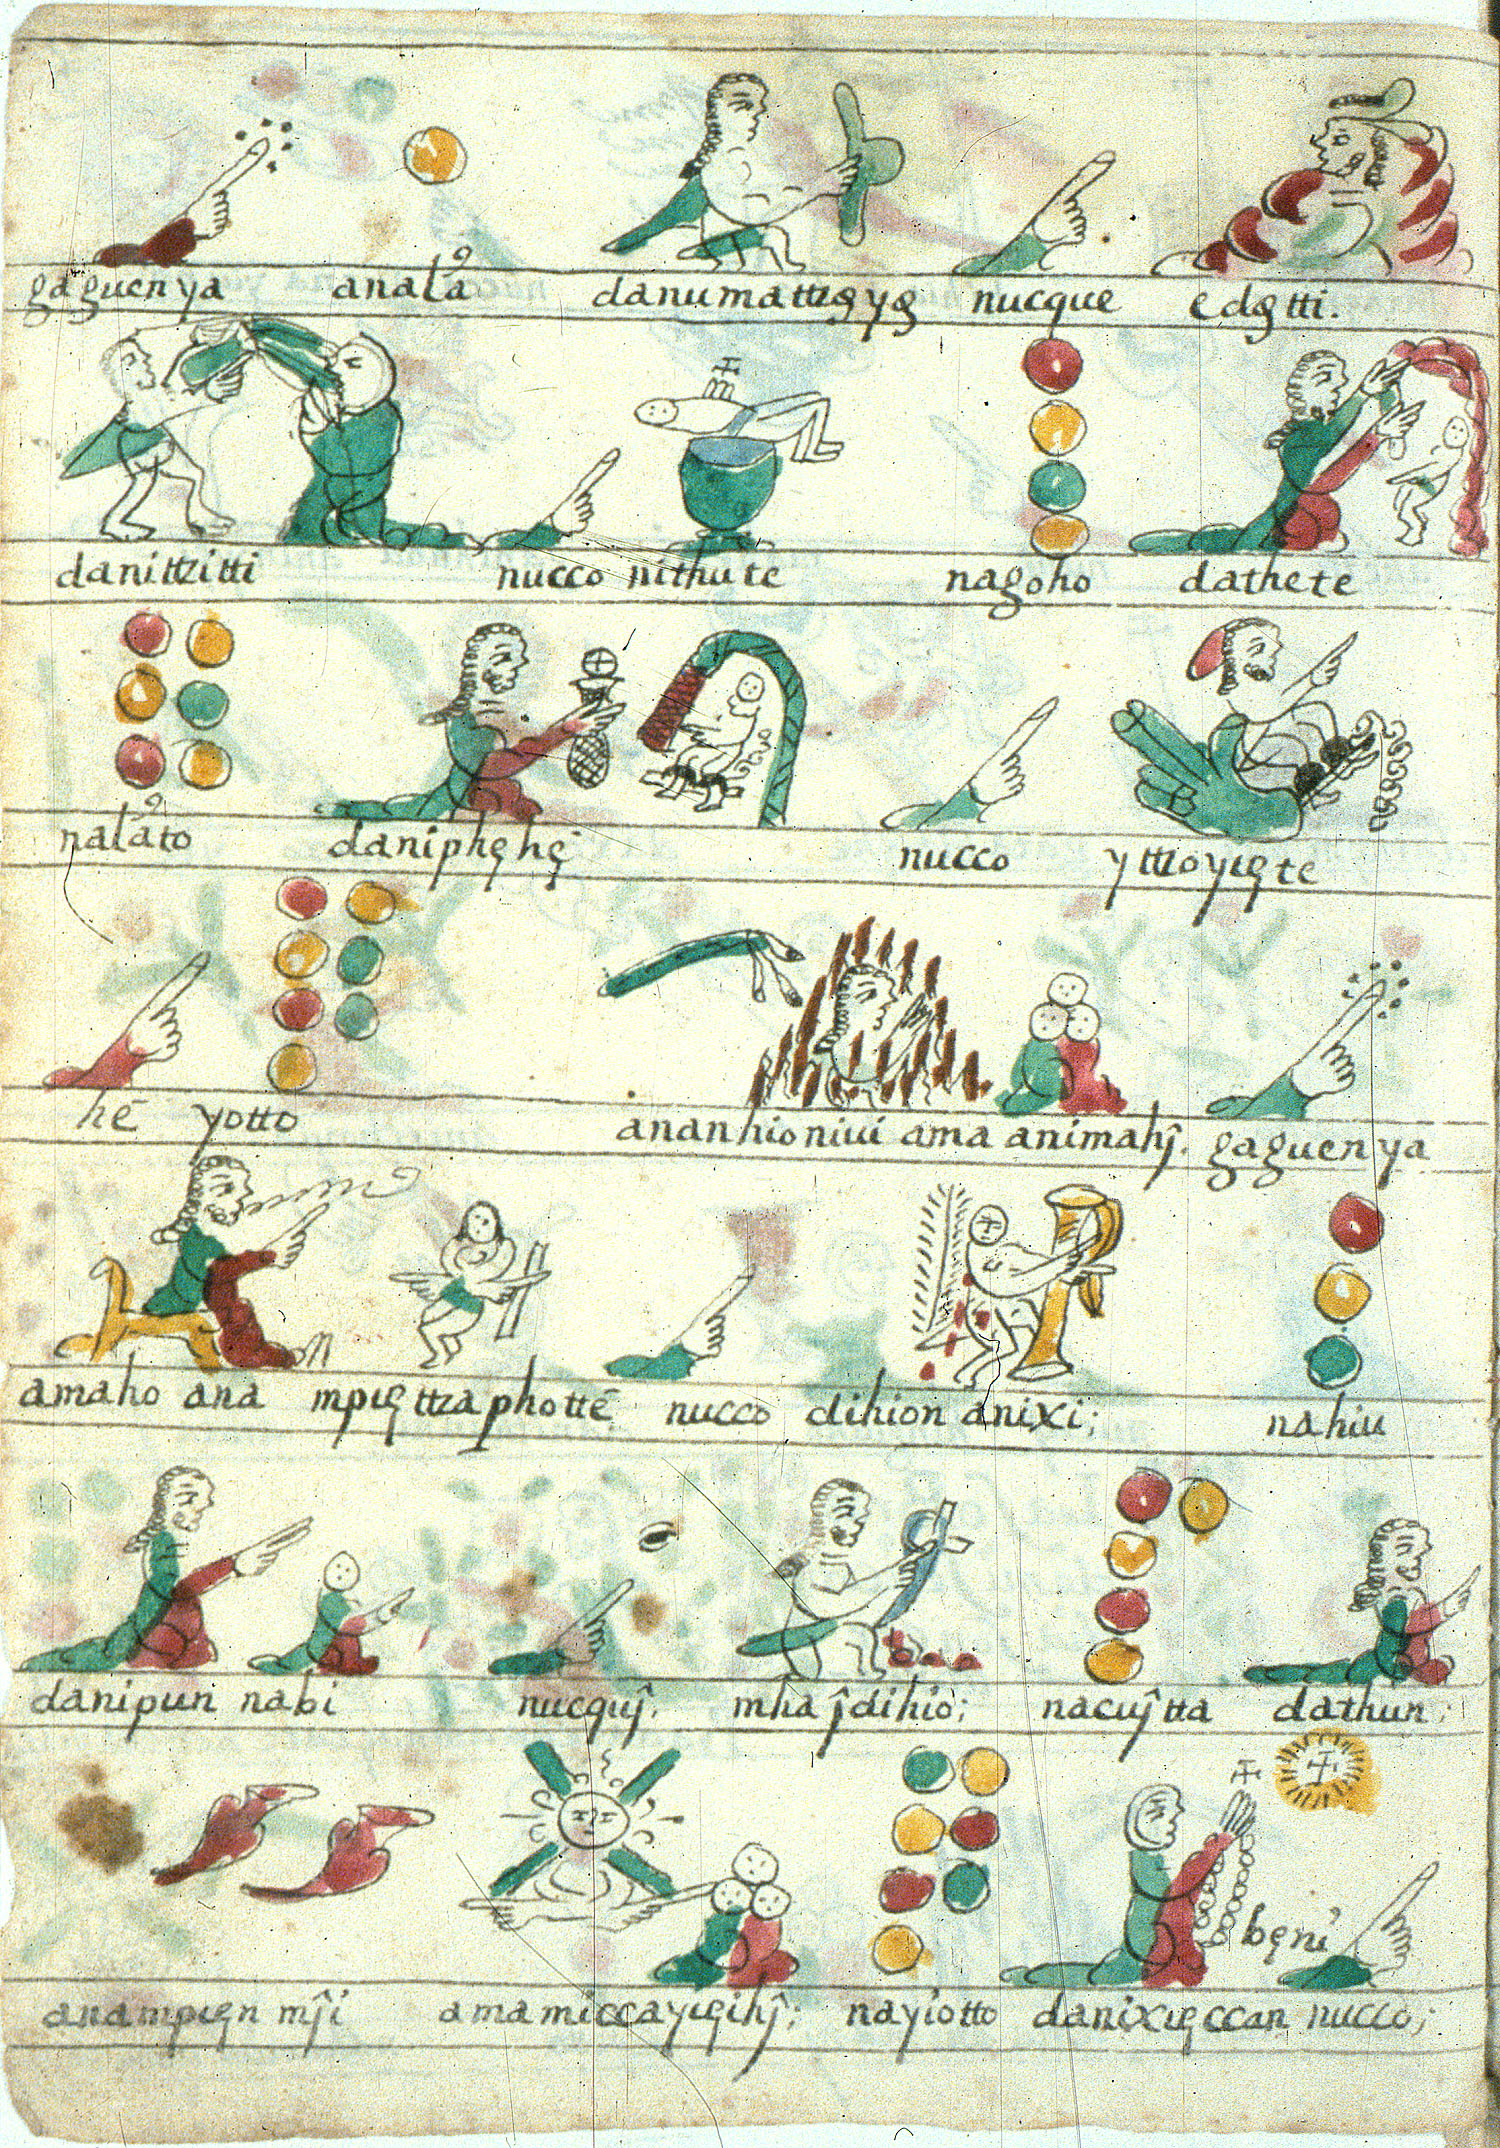 gaguenya analạ̉ danumattzęyę nucque edętti.
danittzitti nucco nithute nagoho dathete
nalảto daniphęhę nucco yttzoyuęte
hē yotto ananhioniui ama animahȷ̑. gaguenya
amaho ana mpuęttzaphottē nucco dihion anixi;
nahiu
danipun nabi nucquȷ̑. mhaȷ̑dihio; nacuȷ̑tta dathun;
bęni
anampuęn mȷ̑i ama miccayuęihȷ̑; nayiotto danixuęccan nucco;